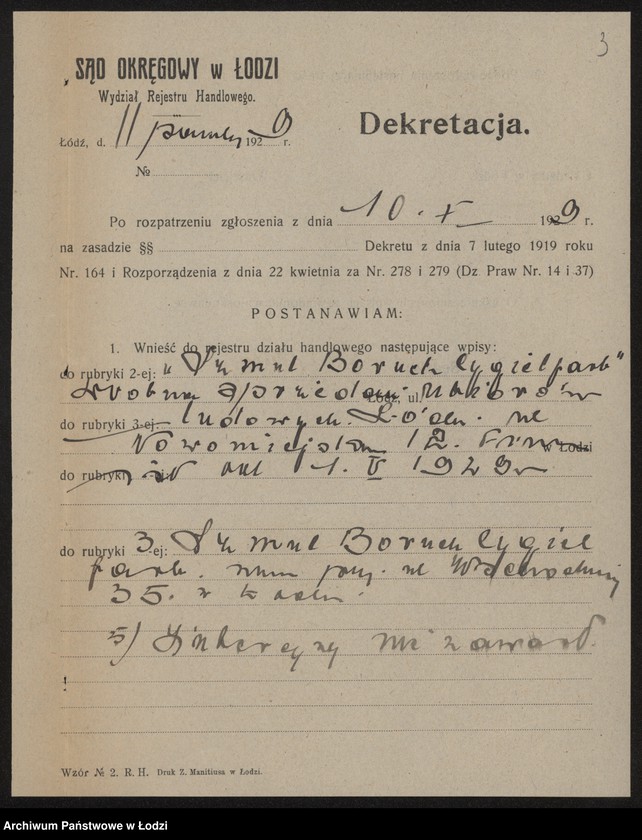 3
SĄD OKRĘGOWY w ŁODZI
Wydział Rejestru Handlowego.
Łódź, d. 11 1929 r.
№
Dekretacja.
Po rozpatrzeniu zgłoszenia z dnia 10. X 1929 r.
na zasadzie §§ Dekretu z dnia 7 lutego 1919 roku
Nr. 164 i Rozporządzenia z dnia 22 kwietnia za Nr. 278 i 279 (Dz Praw Nr. 14 i 37)
POSTANAWIAM:
1. Wnieść do rejestru działu handlowego następujące wpisy:
do rubryki 2-ej: „Szmul Boruch Cygielfarb"
Drobna sprzedaż Łódź, ul. ubiorów
do rubryki 3-ej: ludowych. Łódź. ul
Nowomiejska 12. w Łodzi
do rubryki od 1. V 1929 r
do rubryki 3-ej: Szmul Boruch Cygiel
farb. zam ul Wschodniej
35. w Łodzi.
5) Intercyzy nie zawarł.
Wzór № 2. R. H. Druk Z. Manitiusa w Łodzi.
Archiwum Państwowe w Łodzi